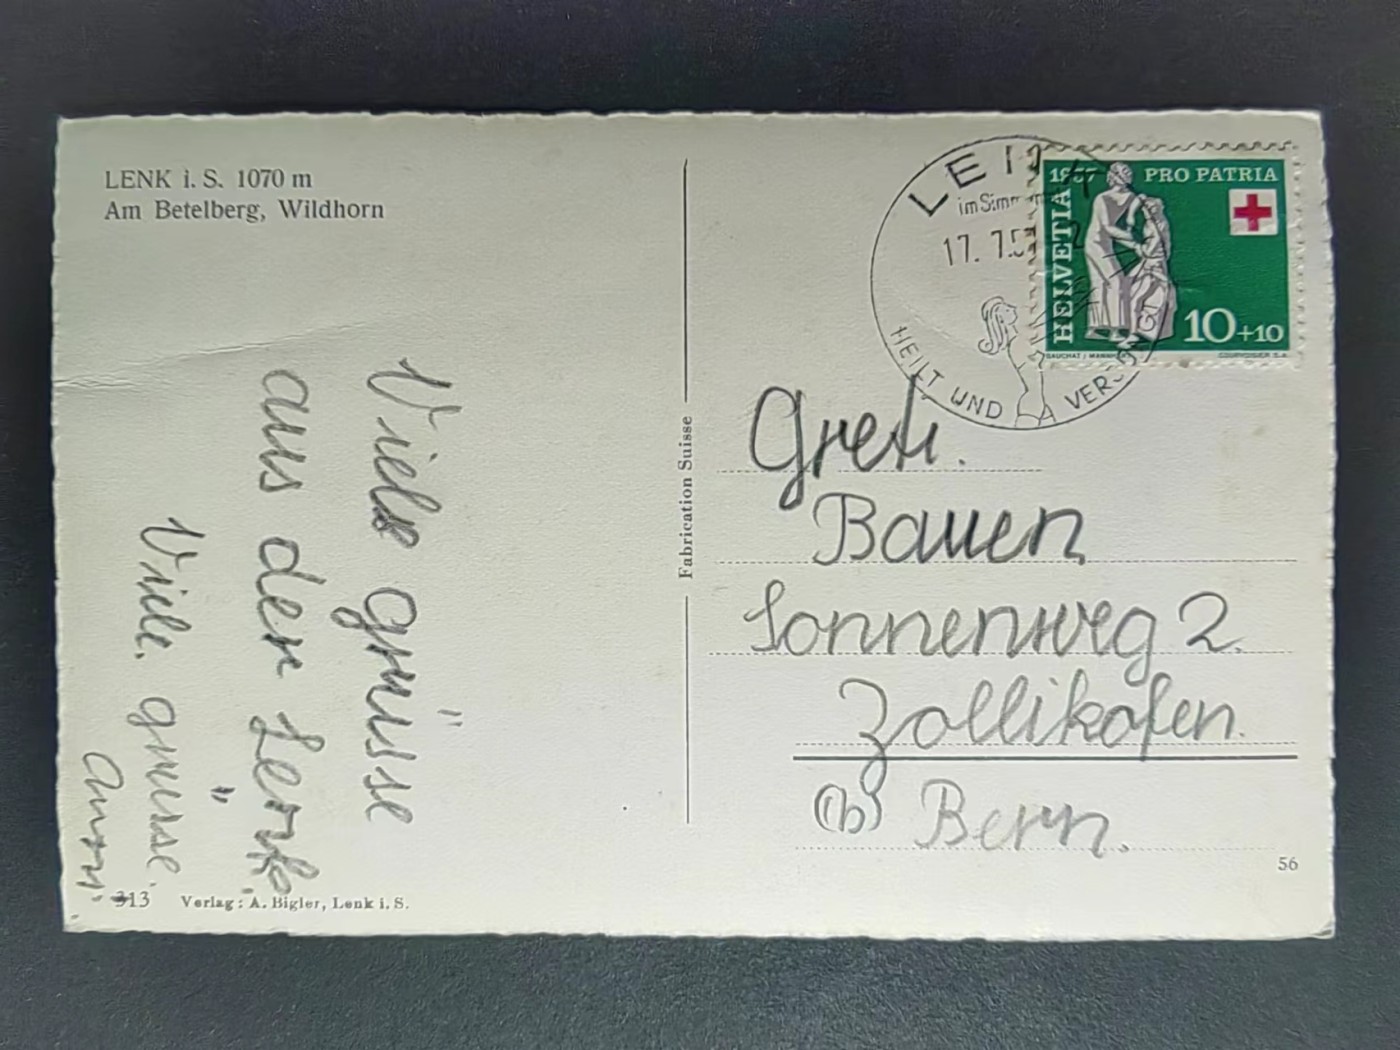 LENK i. S. 1070 m
Am Betelberg, Wildhorn
Viele grüsse
aus der Lenk
Viele. grüsse.
313 Verlag: A. Bigler, Lenk i. S.
Fabrication Suisse
LENK
im Simm
17. 7.57
HEILT UND
1957 PRO PATRIA
HELVETIA
10+10
COURVOISIER S.A.
Greti.
Bauen
Sonnenweg 2.
Zollikofen.
(b) Bern.
56